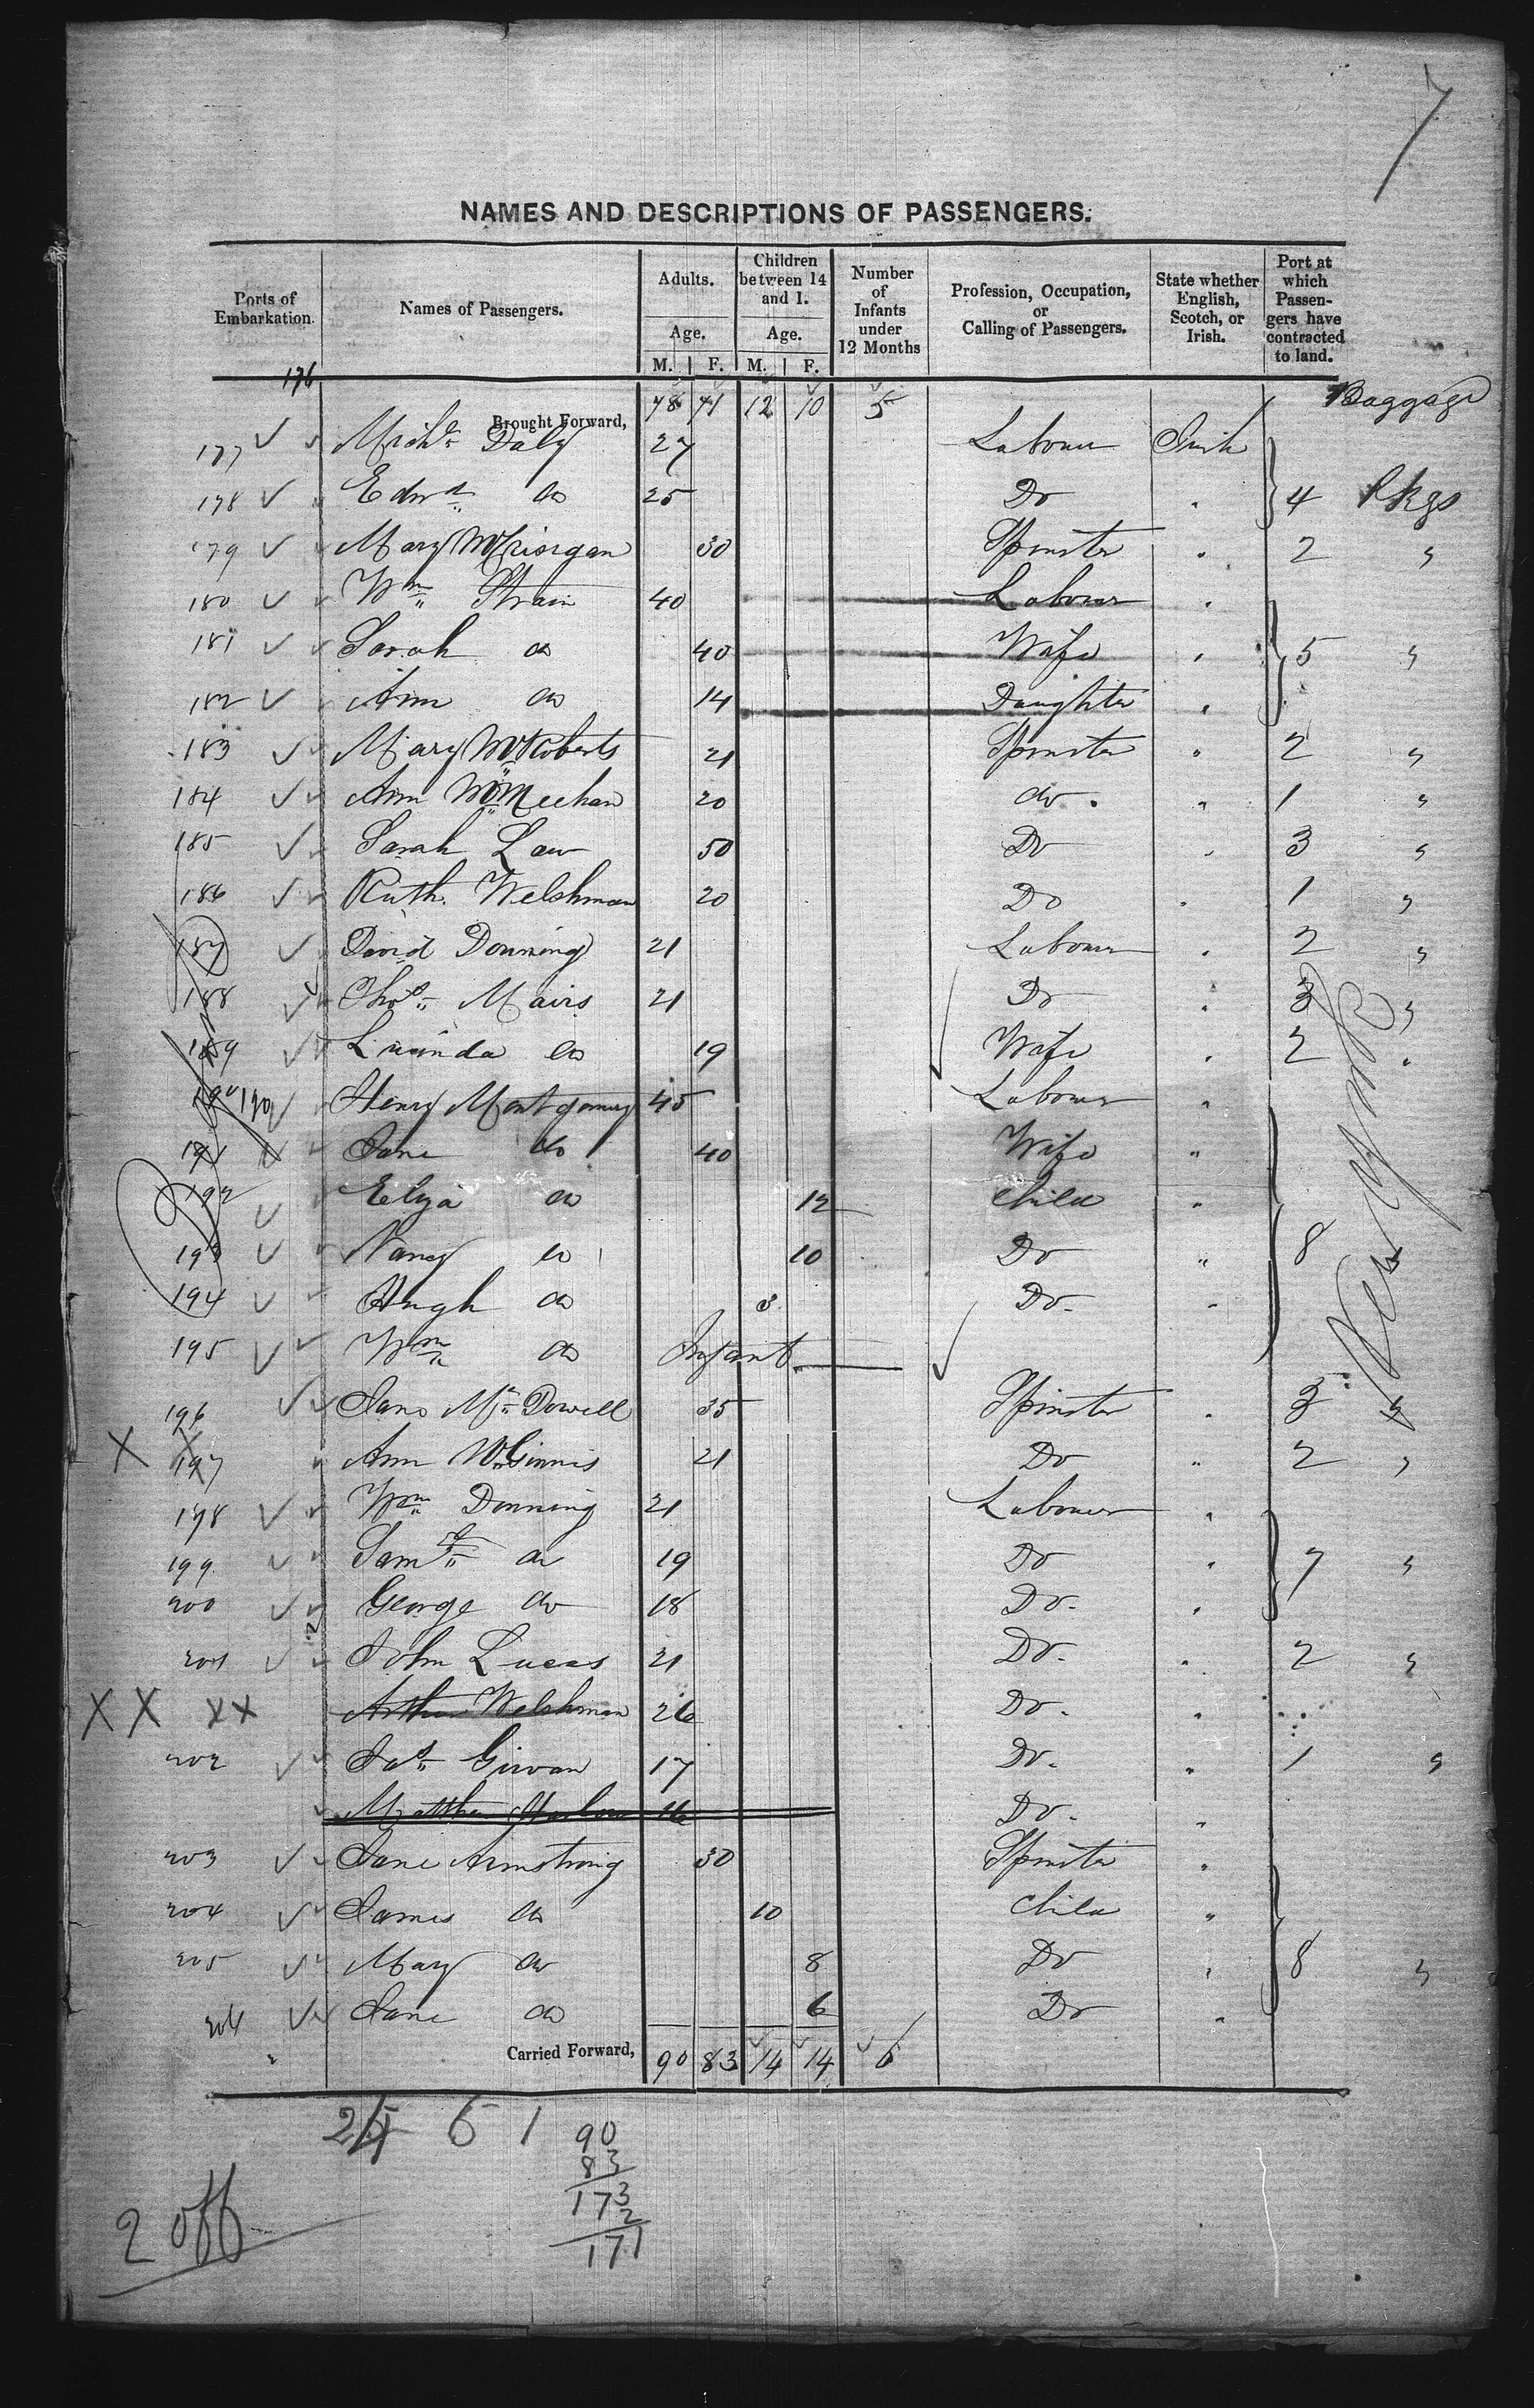 7
NAMES AND DESCRIPTIONS OF PASSENGERS.
Ports of Embarkation. Names of Passengers. Adults. Age. M. F. Children between 14 and 1. Age. M. F. Number of Infants under 12 Months Profession, Occupation, or Calling of Passengers. State whether English, Scotch, or Irish. Port at which Passengers have contracted to land.
176 Brought Forward, 78 71 12 10 5 Baggage
177 Michl Daly 27 Labourer Irish
178 Edwd do 25 Do " 4 Pkgs
179 Mary 30 Spinster " 2 "
180 Wm Strain 40 Labourer "
181 Sarah do 40 Wife " 5 "
182 Ann do 14 Daughter "
183 Mary McRoberts 21 Spinster " 2 "
184 Ann McMeehan 20 do. " 1 "
185 Sarah Law 50 Do " 3 "
186 Ruth Welshman 20 Do " 1 "
187 David Donning 21 Labourer " 2 "
188 Thos Mairs 21 Do " 3 "
189 Lucinda do 19 Wife " 2 "
190 190 Henry Montgomery 45 Labourer "
191 Jane do 40 Wife "
192 Eliza do 12 Child "
193 Nancy do 10 Do " 8
194 Hugh do 3 Do. "
195 Wm do Infant
New York
196 Jane McDowell 35 Spinster " 3 "
X X 197 Ann McGinnis 21 Do " 2 "
198 Wm Donning 21 Labourer "
199 Saml do 19 Do " 7 "
200 George do 18 Do. "
201 John Lucas 21 Do. " 2 "
X X X X Arthur Welshman 26 Do. "
202 Jas Girvan 17 Do. " 1 "
Matthew 16 Do. "
203 Jane Armstrong 30 Spinster "
204 James do 10 Child "
205 Mary do 8 Do " 8 "
206 Jane do 6 Do "
Carried Forward, 90 83 14 14 6
6 1
90
83
173
2
171
2 off